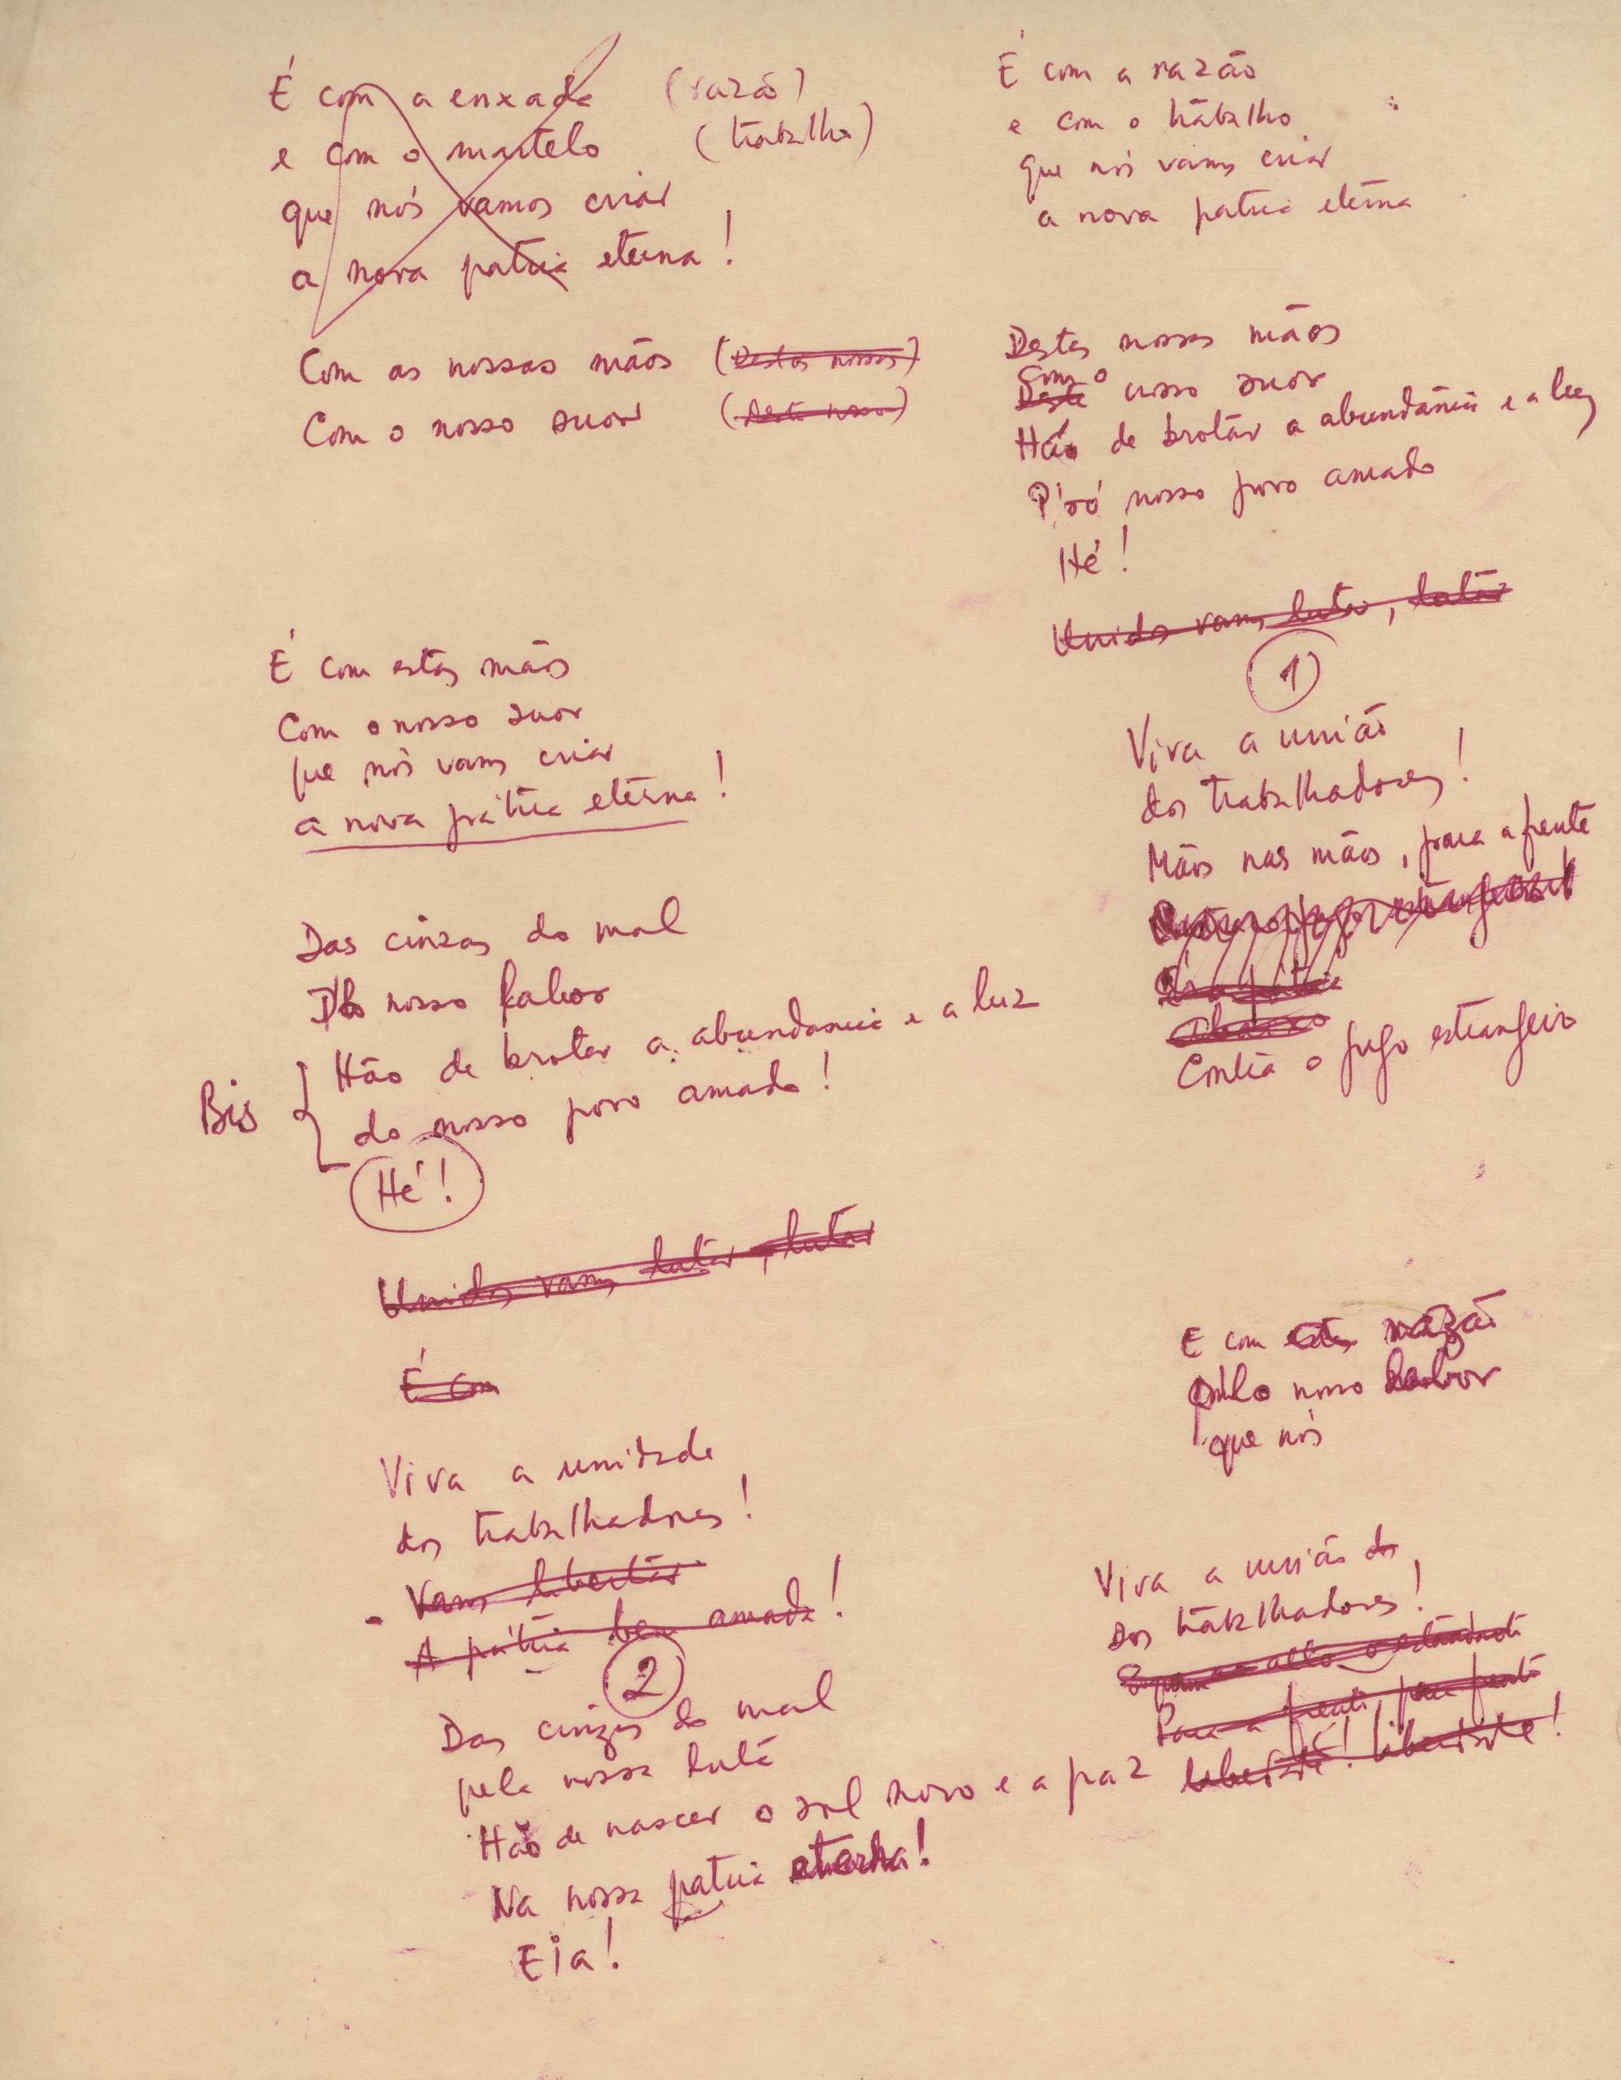 É com a enxada (razão)
e com o martelo (trabalho)
que nós vamos criar
a nova patria eterna!
Com as nossas mãos (Destas nossas)
Com o nosso suor (Deste nosso)
É com estas mãos
Com o nosso suor
que nós vamos criar
a nova pátria eterna!
Das cinzas do mal
Do nosso labor
Bis
Hão de brotar a abundancia e a luz
do nosso povo amado!
Hé!
Unidos vamos lutar, lutar
É com
Viva a unidade
dos trabalhadores!
- Vamos libertar
A pátria bem amada!
2
Das cinzas do mal
pela nossa luta
Hão de nascer o sol novo e a paz
Na nossa patria eterna!
Eia!
É com a razão
e com o trabalho
que nós vamos criar
a nova patria eterna
Destas nossas mãos
Com o
Deste nosso suor
Hão de brotar a abundância e a luz
P'ró nosso povo amado
Hé!
Unidos vamos lutar, lutar
1
Viva a união
dos trabalhadores!
Mãos nas mãos, para a frente
Contra o jugo estrangeiro
E com estas razão
nosso labor
que nós
Viva a união dos
Dos trabalhadores!
alto o estandarte
Para a frente, para frente
liberdade! liberdade!